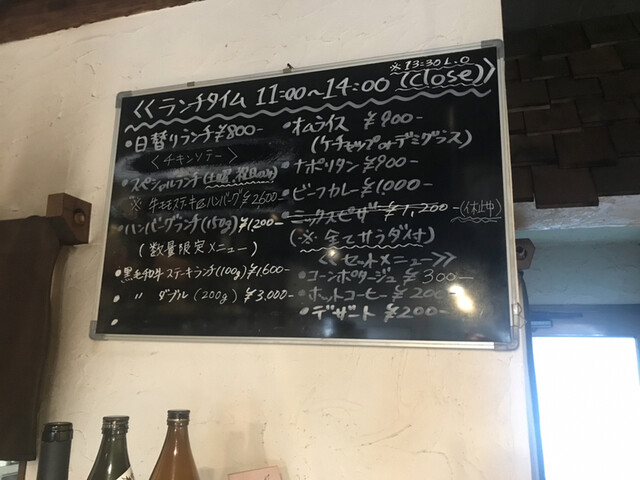 ※13:30 L.O
<<ランチタイム 11:00~14:00 (close)>>
・日替りランチ ¥800-
<チキンソテー>
・スペシャルランチ(土曜、祝日
※牛モモステーキ&ハンバーグ ¥2600-
・ハンバーグランチ(150g) ¥1,200-
(数量限定メニュー)
・黒毛和牛ステーキランチ(100g) ¥1,600-
・ 〃 ダブル(200g) ¥3,000-
・
・オムライス ¥900-
(ケチャップorデミグラス)
・ナポリタン ¥900-
・ビーフカレー ¥1,000-
・ミックスピザ ¥1,200-(休止中)
(※全てサラダ付)
<<セットメニュー>>
・コーンポタージュ ¥300-
・ホットコーヒー ¥200-
・デザート ¥200-